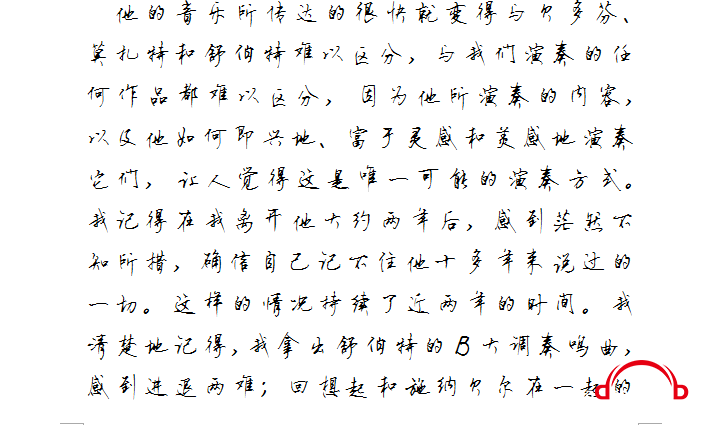 他的音乐所传达的很快就变得与贝多芬、
莫扎特和舒伯特难以区分，与我们演奏的任
何作品都难以区分，因为他所演奏的内容，
以及他如何即兴地、富于灵感和英感地演奏
它们，让人觉得这是唯一可能的演奏方式。
我记得在我离开他大约两年后，感到茫然不
知所措，确信自己记不住他十多年来说过的
一切。这样的情况持续了近两年的时间。我
清楚地记得，我拿出舒伯特的B大调奏鸣曲，
感到进退两难；回想起和施纳贝尔在一起的